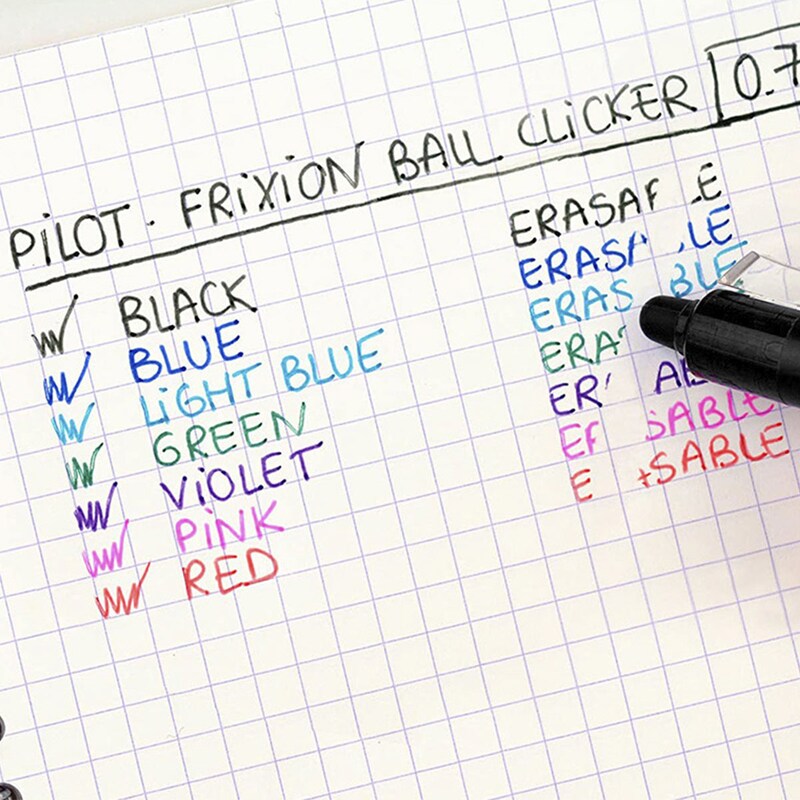 PiLOT. FRiXiON BALL CLiCKER 0.7
BLACK
BLUE
LiGHT BLUE
GREEN
ViOLET
PiNK
RED
ERASA E
ERAS LE
ERAS BLE
ERA
ER A
E SABLE
E SABLE